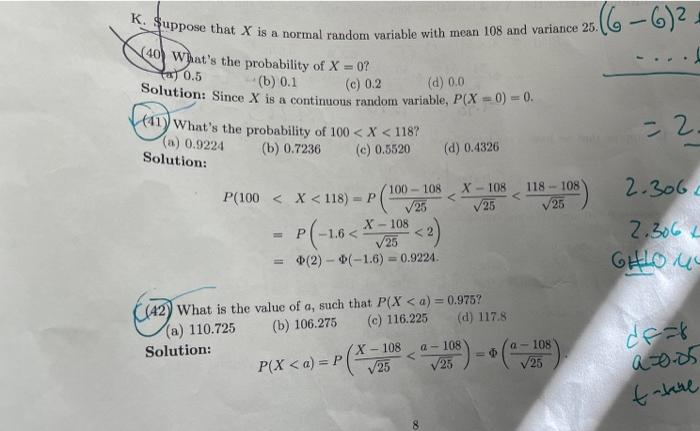 K. Suppose that X is a normal random variable with mean 108 and variance 25.
(6 - 6)²
(40) What's the probability of X = 0?
(a) 0.5 (b) 0.1 (c) 0.2 (d) 0.0
Solution: Since X is a continuous random variable, P(X = 0) = 0.
= 2
(41) What's the probability of 100 < X < 118?
(a) 0.9224 (b) 0.7236 (c) 0.5520 (d) 0.4326
Solution:
P(100 < X < 118) = P( (100 − 108)/√25 < (X − 108)/√25 < (118 − 108)/√25 )
2.306
= P( −1.6 < (X − 108)/√25 < 2 )
2.306
= Φ(2) − Φ(−1.6) = 0.9224.
(42) What is the value of a, such that P(X < a) = 0.975?
(a) 110.725 (b) 106.275 (c) 116.225 (d) 117.8
Solution:
P(X < a) = P( (X − 108)/√25 < (a − 108)/√25 ) = Φ( (a − 108)/√25 ).
df=8
a=0.05
8